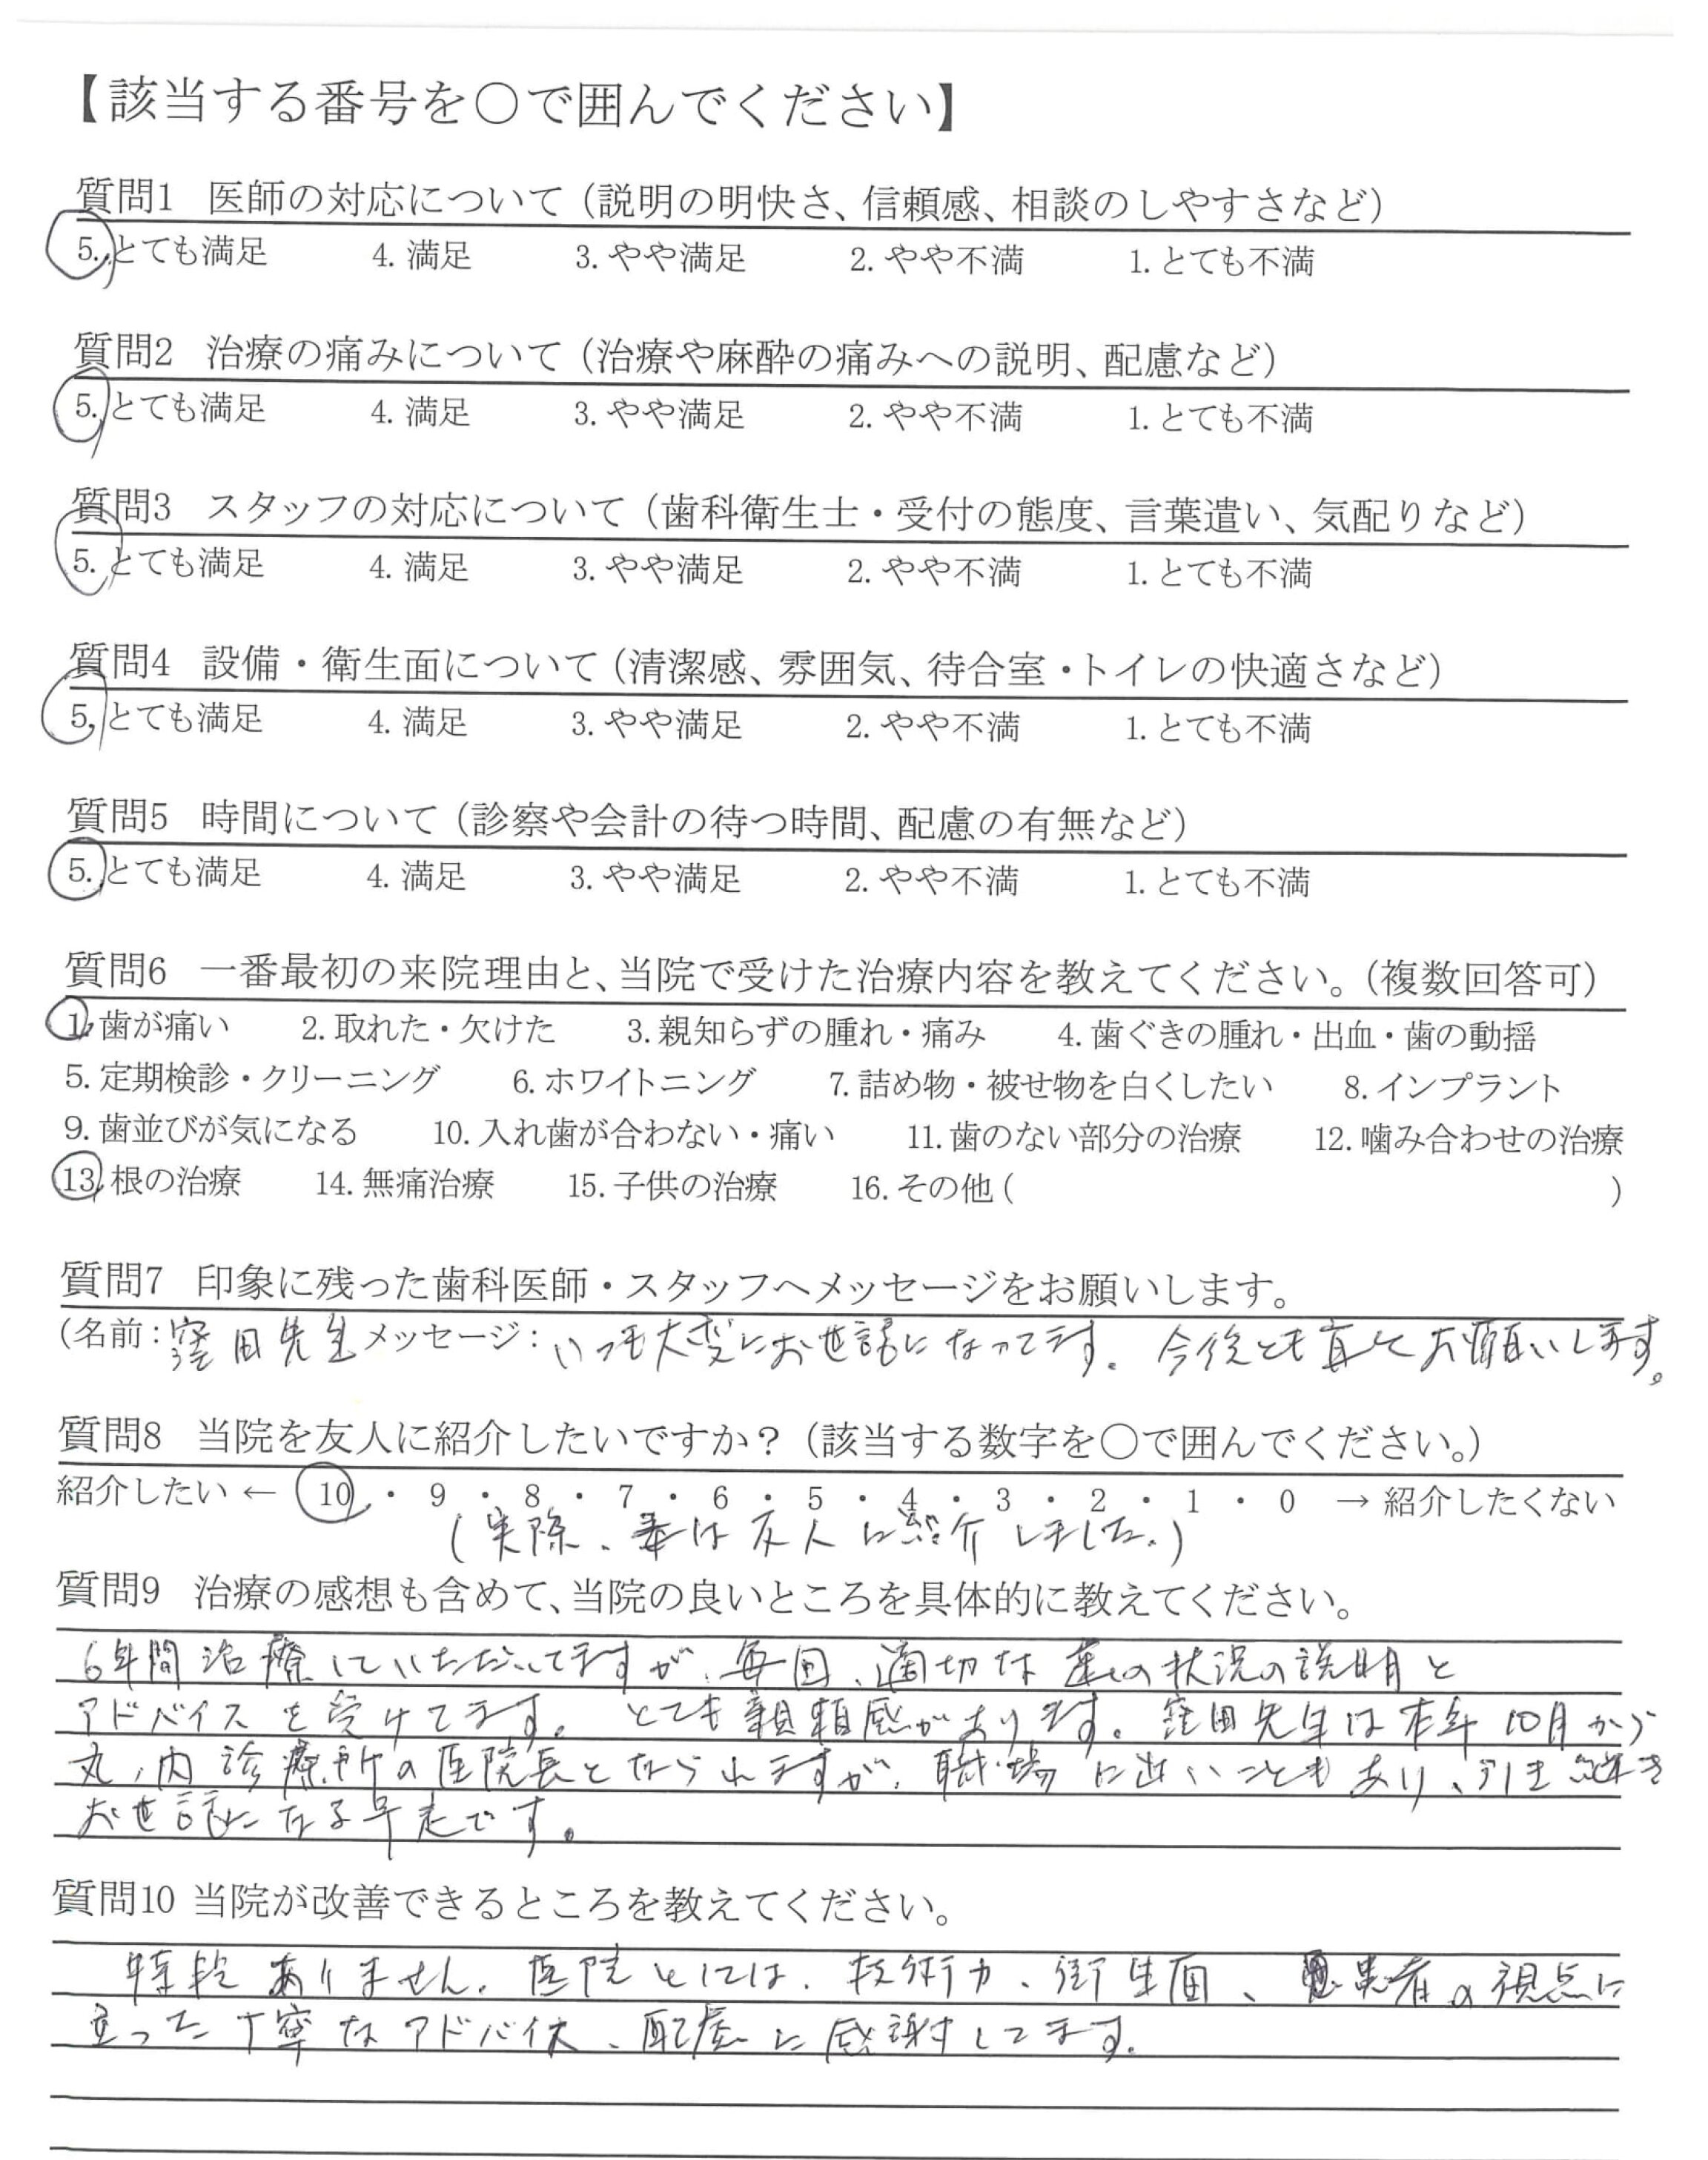 【該当する番号を○で囲んでください】
質問1 医師の対応について（説明の明快さ、信頼感、相談のしやすさなど）
5.とても満足 4.満足 3.やや満足 2.やや不満 1.とても不満
質問2 治療の痛みについて（治療や麻酔の痛みへの説明、配慮など）
5.とても満足 4.満足 3.やや満足 2.やや不満 1.とても不満
質問3 スタッフの対応について（歯科衛生士・受付の態度、言葉遣い、気配りなど）
5.とても満足 4.満足 3.やや満足 2.やや不満 1.とても不満
質問4 設備・衛生面について（清潔感、雰囲気、待合室・トイレの快適さなど）
5.とても満足 4.満足 3.やや満足 2.やや不満 1.とても不満
質問5 時間について（診察や会計の待つ時間、配慮の有無など）
5.とても満足 4.満足 3.やや満足 2.やや不満 1.とても不満
質問6 一番最初の来院理由と、当院で受けた治療内容を教えてください。（複数回答可）
1.歯が痛い 2.取れた・欠けた 3.親知らずの腫れ・痛み 4.歯ぐきの腫れ・出血・歯の動揺
5.定期検診・クリーニング 6.ホワイトニング 7.詰め物・被せ物を白くしたい 8.インプラント
9.歯並びが気になる 10.入れ歯が合わない・痛い 11.歯のない部分の治療 12.噛み合わせの治療
13.根の治療 14.無痛治療 15.子供の治療 16.その他（ ）
質問7 印象に残った歯科医師・スタッフへメッセージをお願いします。
（名前：窪田先生 メッセージ：いつも大変にお世話になってます。今後とも宜しくお願いします。
質問8 当院を友人に紹介したいですか？（該当する数字を○で囲んでください。）
紹介したい ← 10 ・ 9 ・ 8 ・ 7 ・ 6 ・ 5 ・ 4 ・ 3 ・ 2 ・ 1 ・ 0 → 紹介したくない
（実際、妻は友人に紹介しました。）
質問9 治療の感想も含めて、当院の良いところを具体的に教えてください。
6年間治療していただいてますが、毎回、適切な歯の状況の説明と
アドバイスを受けてます。とても信頼感があります。窪田先生は本年10月から
丸ノ内診療所の医院長となられますが、職場に近いこともあり、引き継き
お世話になる予定です。
質問10 当院が改善できるところを教えてください。
特段ありません。医院としては、技術力、衛生面、患者の視点に
立った丁寧なアドバイス、配慮に感謝してます。